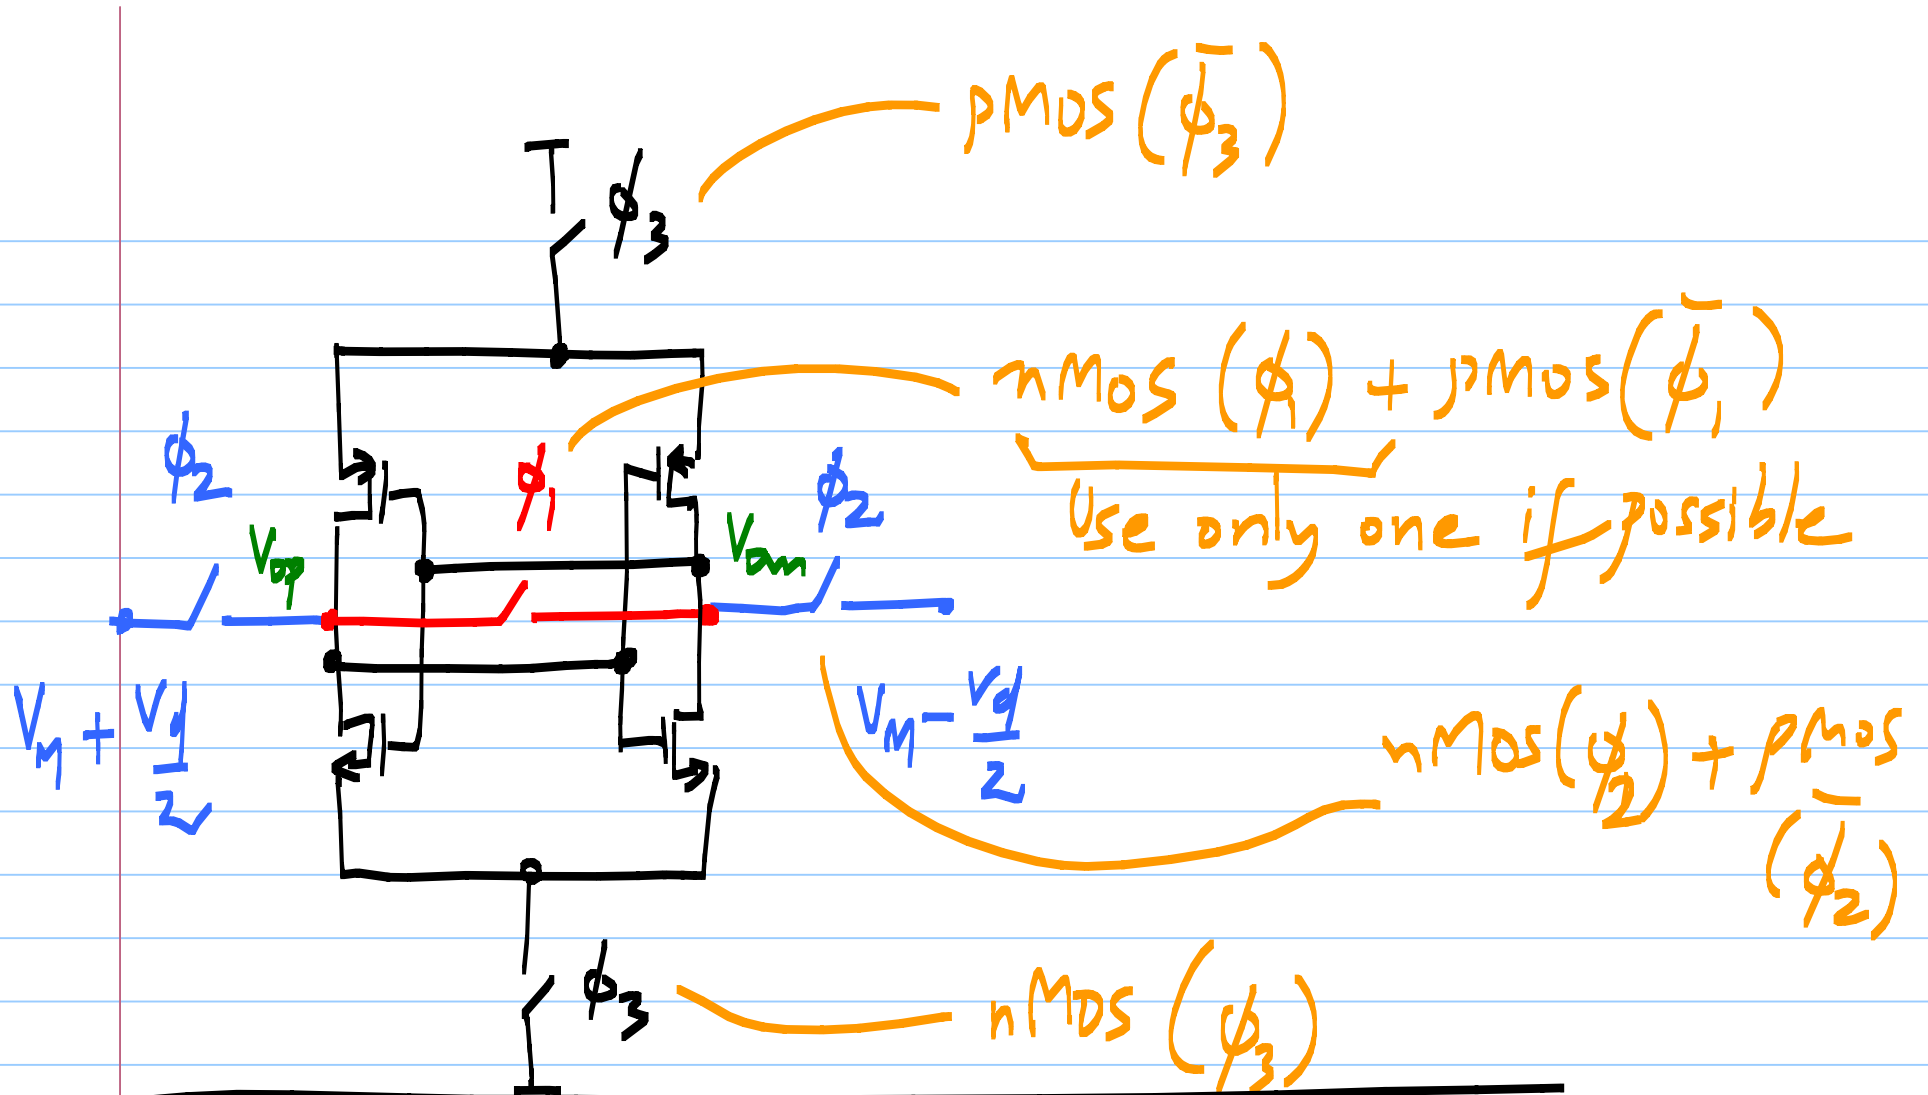 pMOS (ϕ̄₃)
ϕ₃
nMOS (ϕ₁) + pMOS (ϕ̄₁)
Use only one if possible
ϕ₂
ϕ₁
ϕ₂
V_Dp
V_Dm
V_M + V_d/2
V_M − V_d/2
nMOS (ϕ₂) + pMOS
(ϕ̄₂)
ϕ₃
nMOS (ϕ₃)